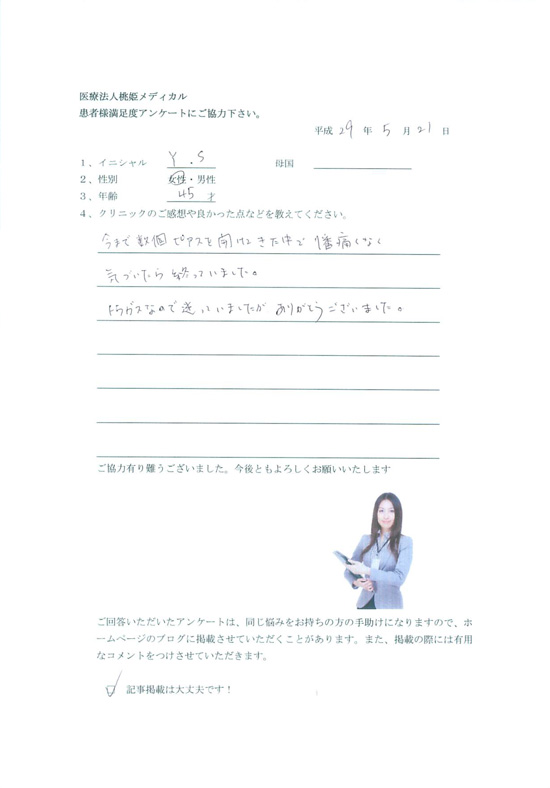 医療法人桃姫メディカル
患者様満足度アンケートにご協力下さい。
平成 29 年 5 月 21 日
1、イニシャル Y.S 母国
2、性別 女性・男性
3、年齢 45 才
4、クリニックのご感想や良かった点などを教えてください。
今まで数個ピアスを開けてきた中で1番痛くなく
気づいたら終っていました。
なので迷っていましたが ありがとうございました。
ご協力有り難うございました。今後ともよろしくお願いいたします
ご回答いただいたアンケートは、同じ悩みをお持ちの方の手助けになりますので、ホ
ームページのブログに掲載させていただくことがあります。また、掲載の際には有用
なコメントをつけさせていただきます。
記事掲載は大丈夫です！